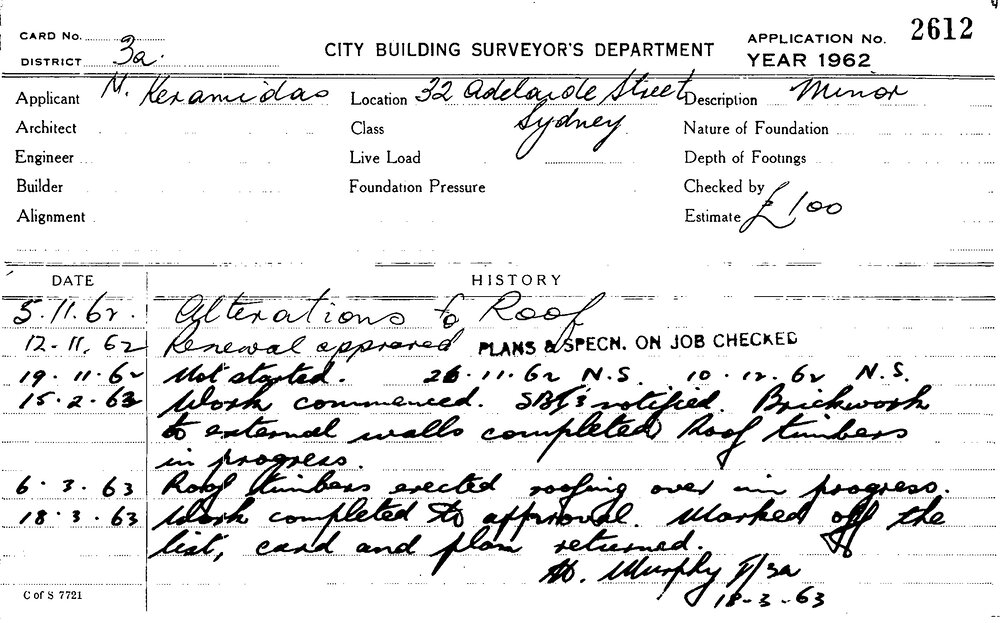 CARD No.
CITY BUILDING SURVEYOR'S DEPARTMENT
APPLICATION No. 2612
DISTRICT 3a.
YEAR 1962
Applicant N. Keramidas Location 32 Adelaide Street Description Minor
Architect Class Sydney Nature of Foundation
Engineer Live Load Depth of Footings
Builder Foundation Pressure Checked by
Alignment Estimate £100
DATE HISTORY
5.11.62. Alterations to Roof
12.11.62 Renewal approved PLANS & SPECN. ON JOB CHECKED
19.11.62 Not started. 26.11.62 N.S. 10.12.62 N.S.
15.2.63 Work commenced. notified. Brickwork
to external walls completed Roof timbers
in progress.
6.3.63 Roof timbers erected roofing over in progress.
18.3.63 Work completed to approval. Marked off the
list, card and plan returned.
Murphy 3a
18.3.63
C of S 7721